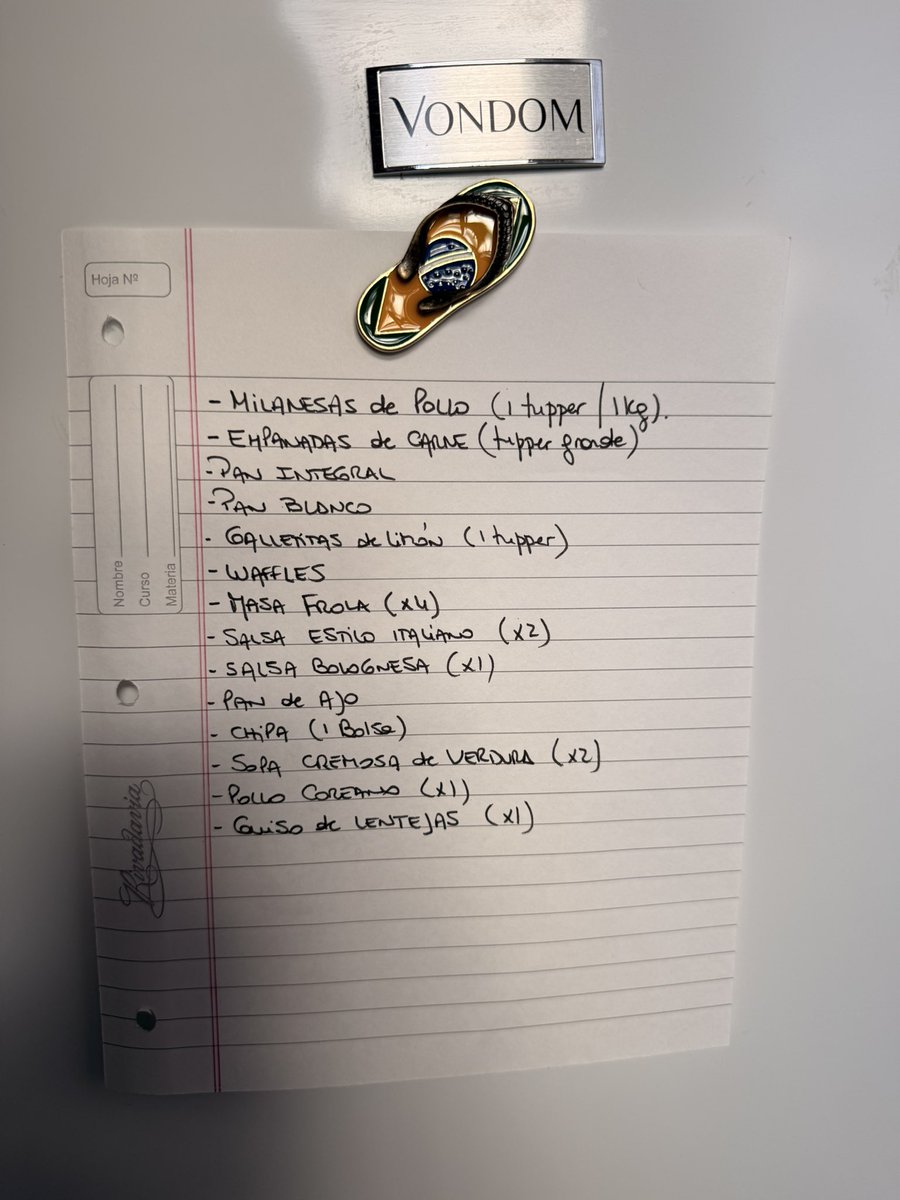 VONDOM
Hoja Nº
- MILANESAS de POLLO (1 tupper / 1kg).
- EMPANADAS de CARNE (tupper grande)
- PAN INTEGRAL
- PAN BLANCO
- GALLETITAS de limón (1 tupper)
- WAFFLES
- MASA FROLA (x4)
- SALSA ESTILO ITALIANO (x2)
- SALSA BOLOGNESA (x1)
- PAN de AJO
- CHIPA (1 Bolsa)
- SOPA CREMOSA de VERDURA (x2)
- POLLO COREANO (x1)
- GUISO de LENTEJAS (x1)
Nombre
Curso
Materia
Rivadavia